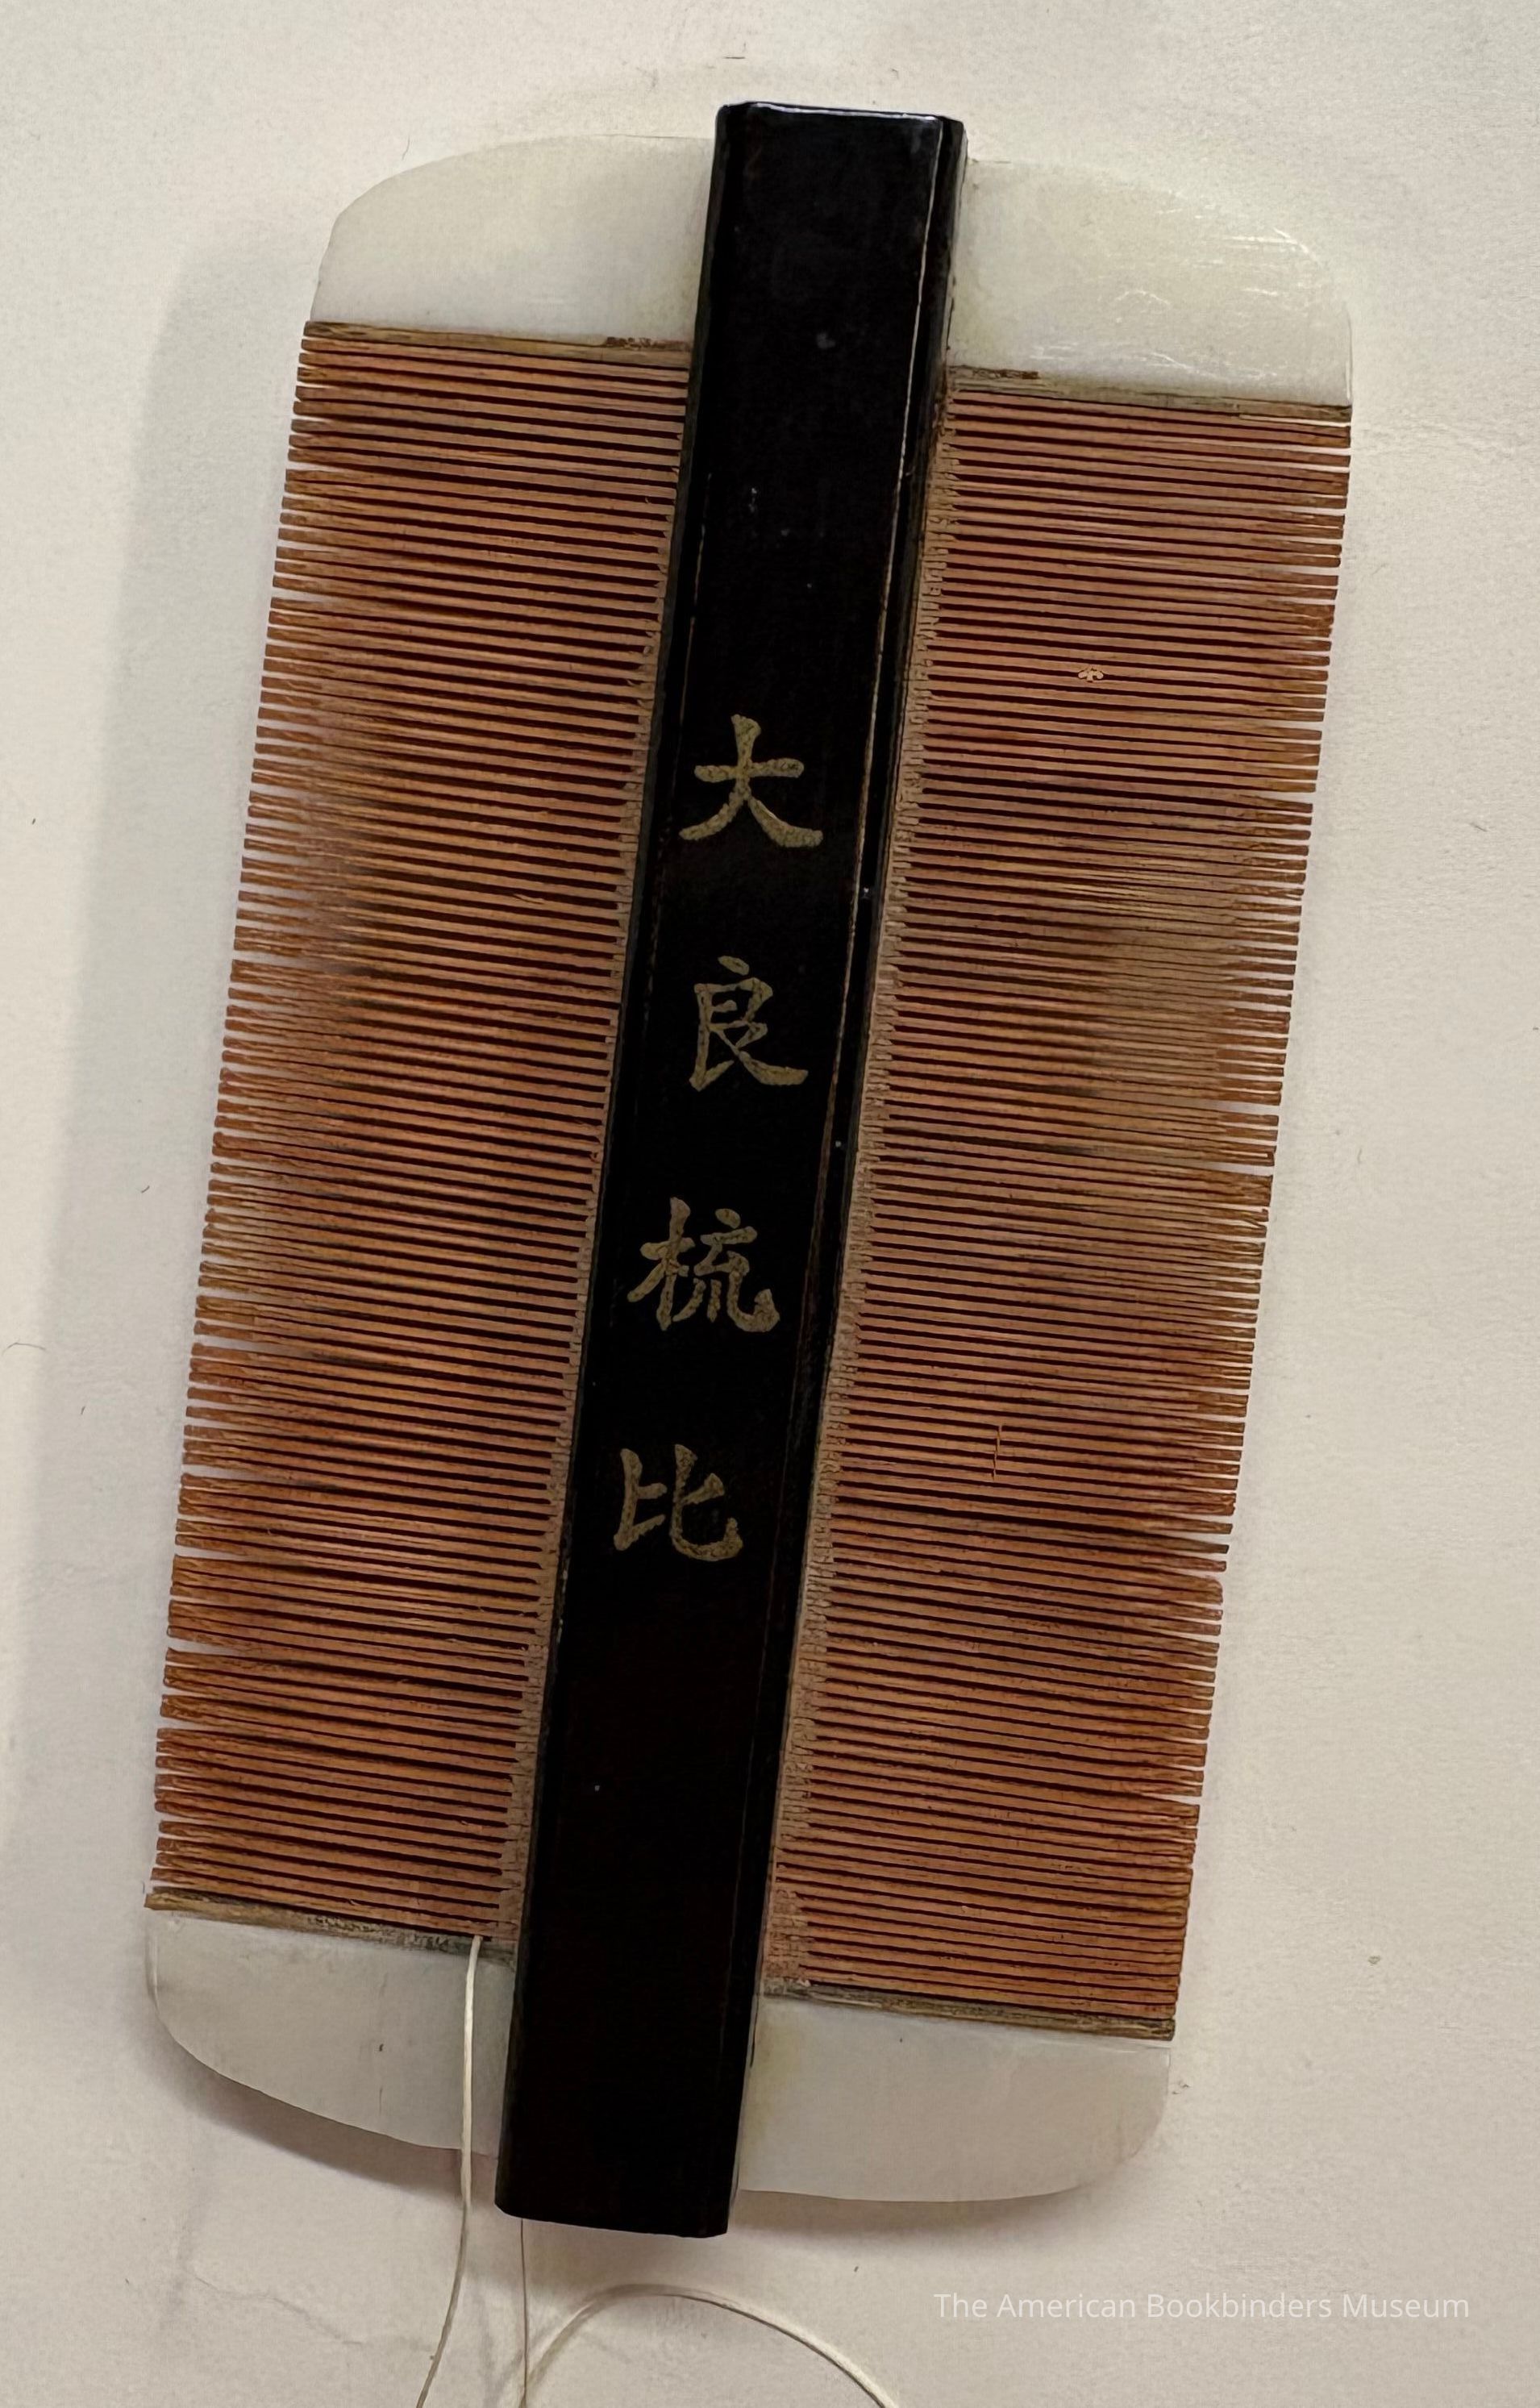 大良梳比
The American Bookbinders Museum